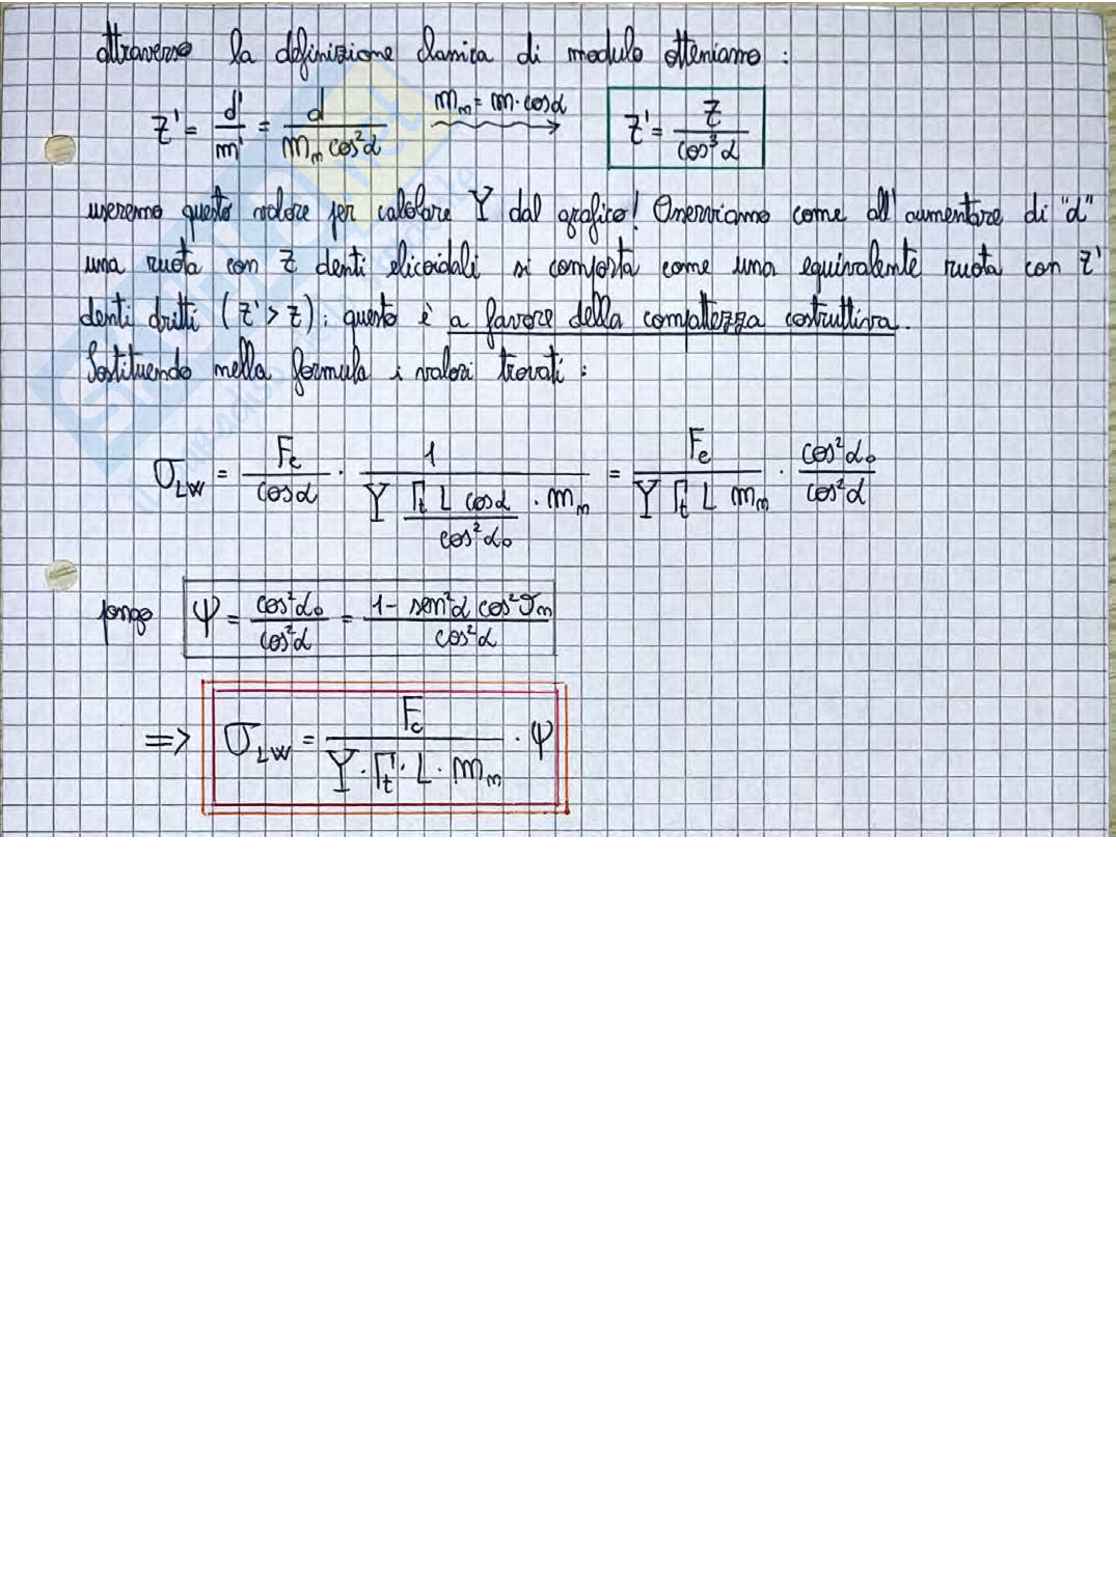 attraverso la definizione classica di modulo otteniamo :
z' = d'/m' = d/(m_n cos²α) m_n = m·cosα z' = z/cos³α
useremo questo valore per calcolare Y dal grafico! Osserviamo come all'aumentare di "α"
una ruota con z denti elicoidali si comporta come una equivalente ruota con z'
denti dritti (z' > z); questo è a favore della compattezza costruttiva.
Sostituendo nella formula i valori trovati :
σ_LW = F_c/cosα · 1/(Y (Γ_t L cosα/cos²α₀) · m_n) = F_c/(Y Γ_t L m_n) · cos²α₀/cos²α
pongo ψ = cos²α₀/cos²α = (1 - sen²α cos²ϑ_n)/cos²α
=> σ_LW = F_c/(Y · Γ_t' · L · m_n) · ψ